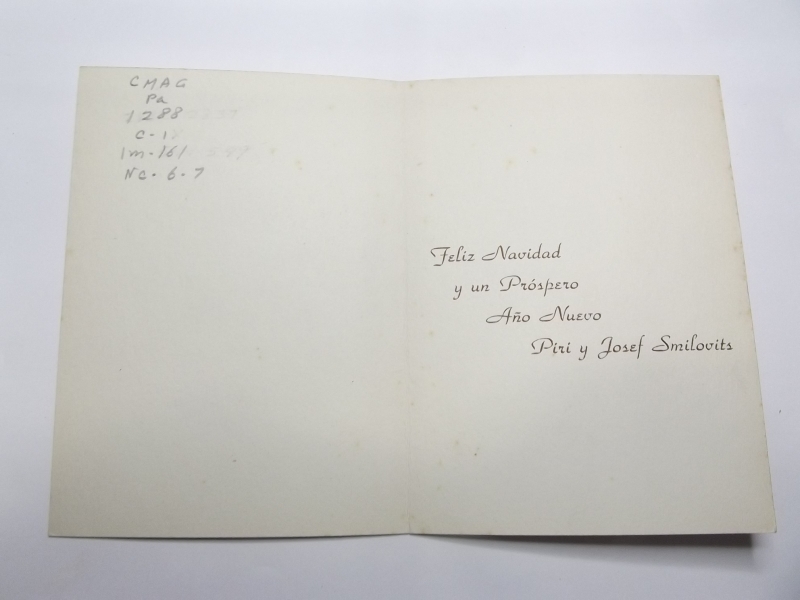 CMAG
Pa
1288
C-1
Im-161
NC-6-7
Feliz Navidad
y un Próspero
Año Nuevo
Piri y Josef Smilovits